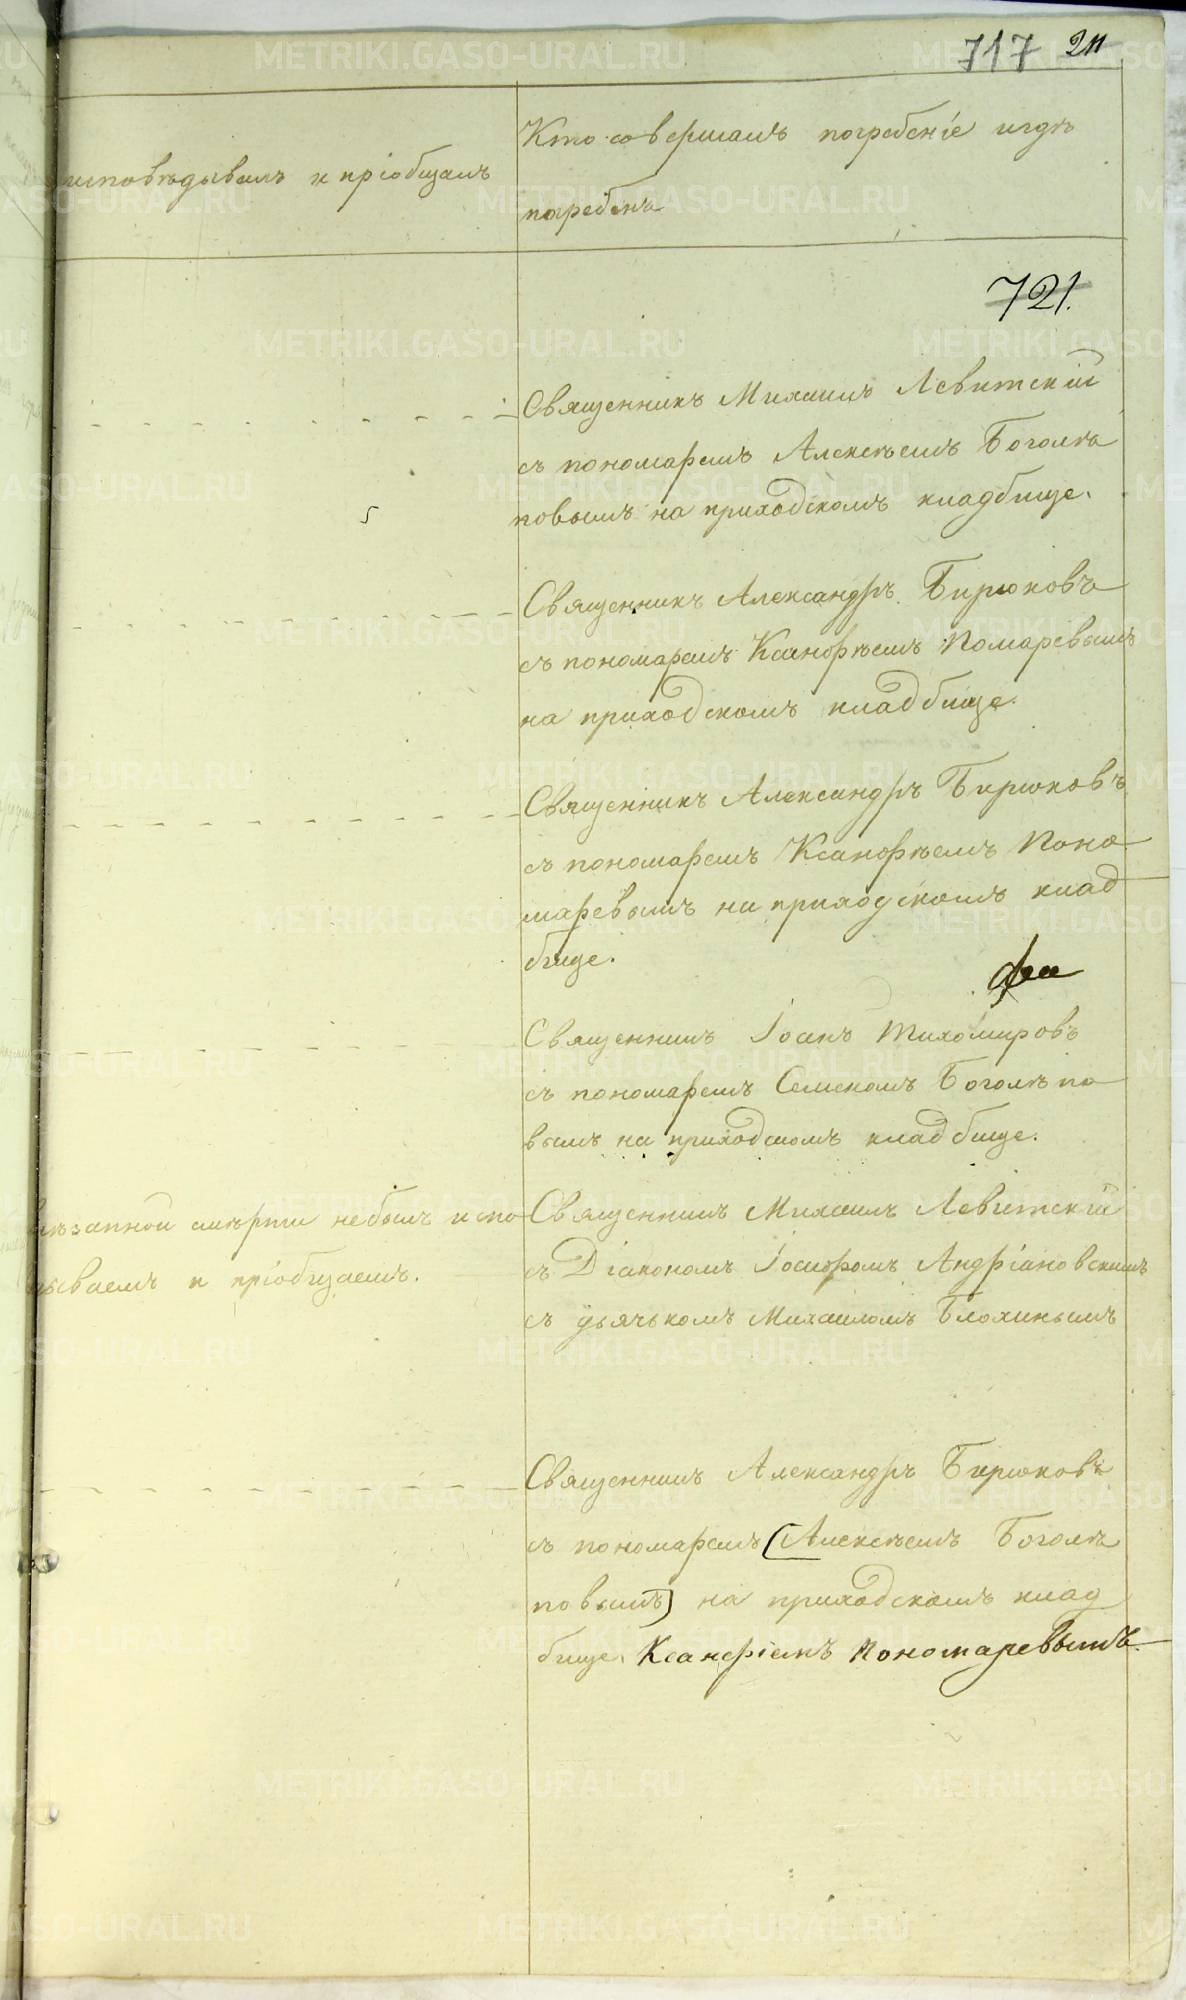 717 211
исповѣдывалъ и пріобщалъ
Кто совершалъ погребеніе и гдѣ
погребенъ
721.
Священникъ Михаилъ Левитскій
съ пономаремъ Алексѣемъ Боголѣ
повымъ на приходскомъ кладбище.
Священникъ Александръ Бирюковъ
съ пономаремъ Ксанофѣемъ Помаревымъ
на приходскомъ кладбище.
Священникъ Александръ Бирюковъ
съ пономаремъ Ксанофѣемъ Поно
маревымъ на приходскомъ клад
бище.
Священникъ Іоанъ Тихомировъ
съ пономаремъ Семеномъ Боголѣпо
вымъ на приходскомъ кладбище.
незапной смѣрти небылъ испо
дываемъ и пріобщаемъ.
Священникъ Михаилъ Левитскій
съ Діакономъ Іосифомъ Андріановскимъ
съ дьячькомъ Михаиломъ Блохинымъ
Священникъ Александръ Бирюковъ
съ пономаремъ (Алексѣемъ Боголѣ
повымъ) на приходскомъ клад
бище. Ксанфіемъ Пономаревымъ.
METRIKI.GASO-URAL.RU